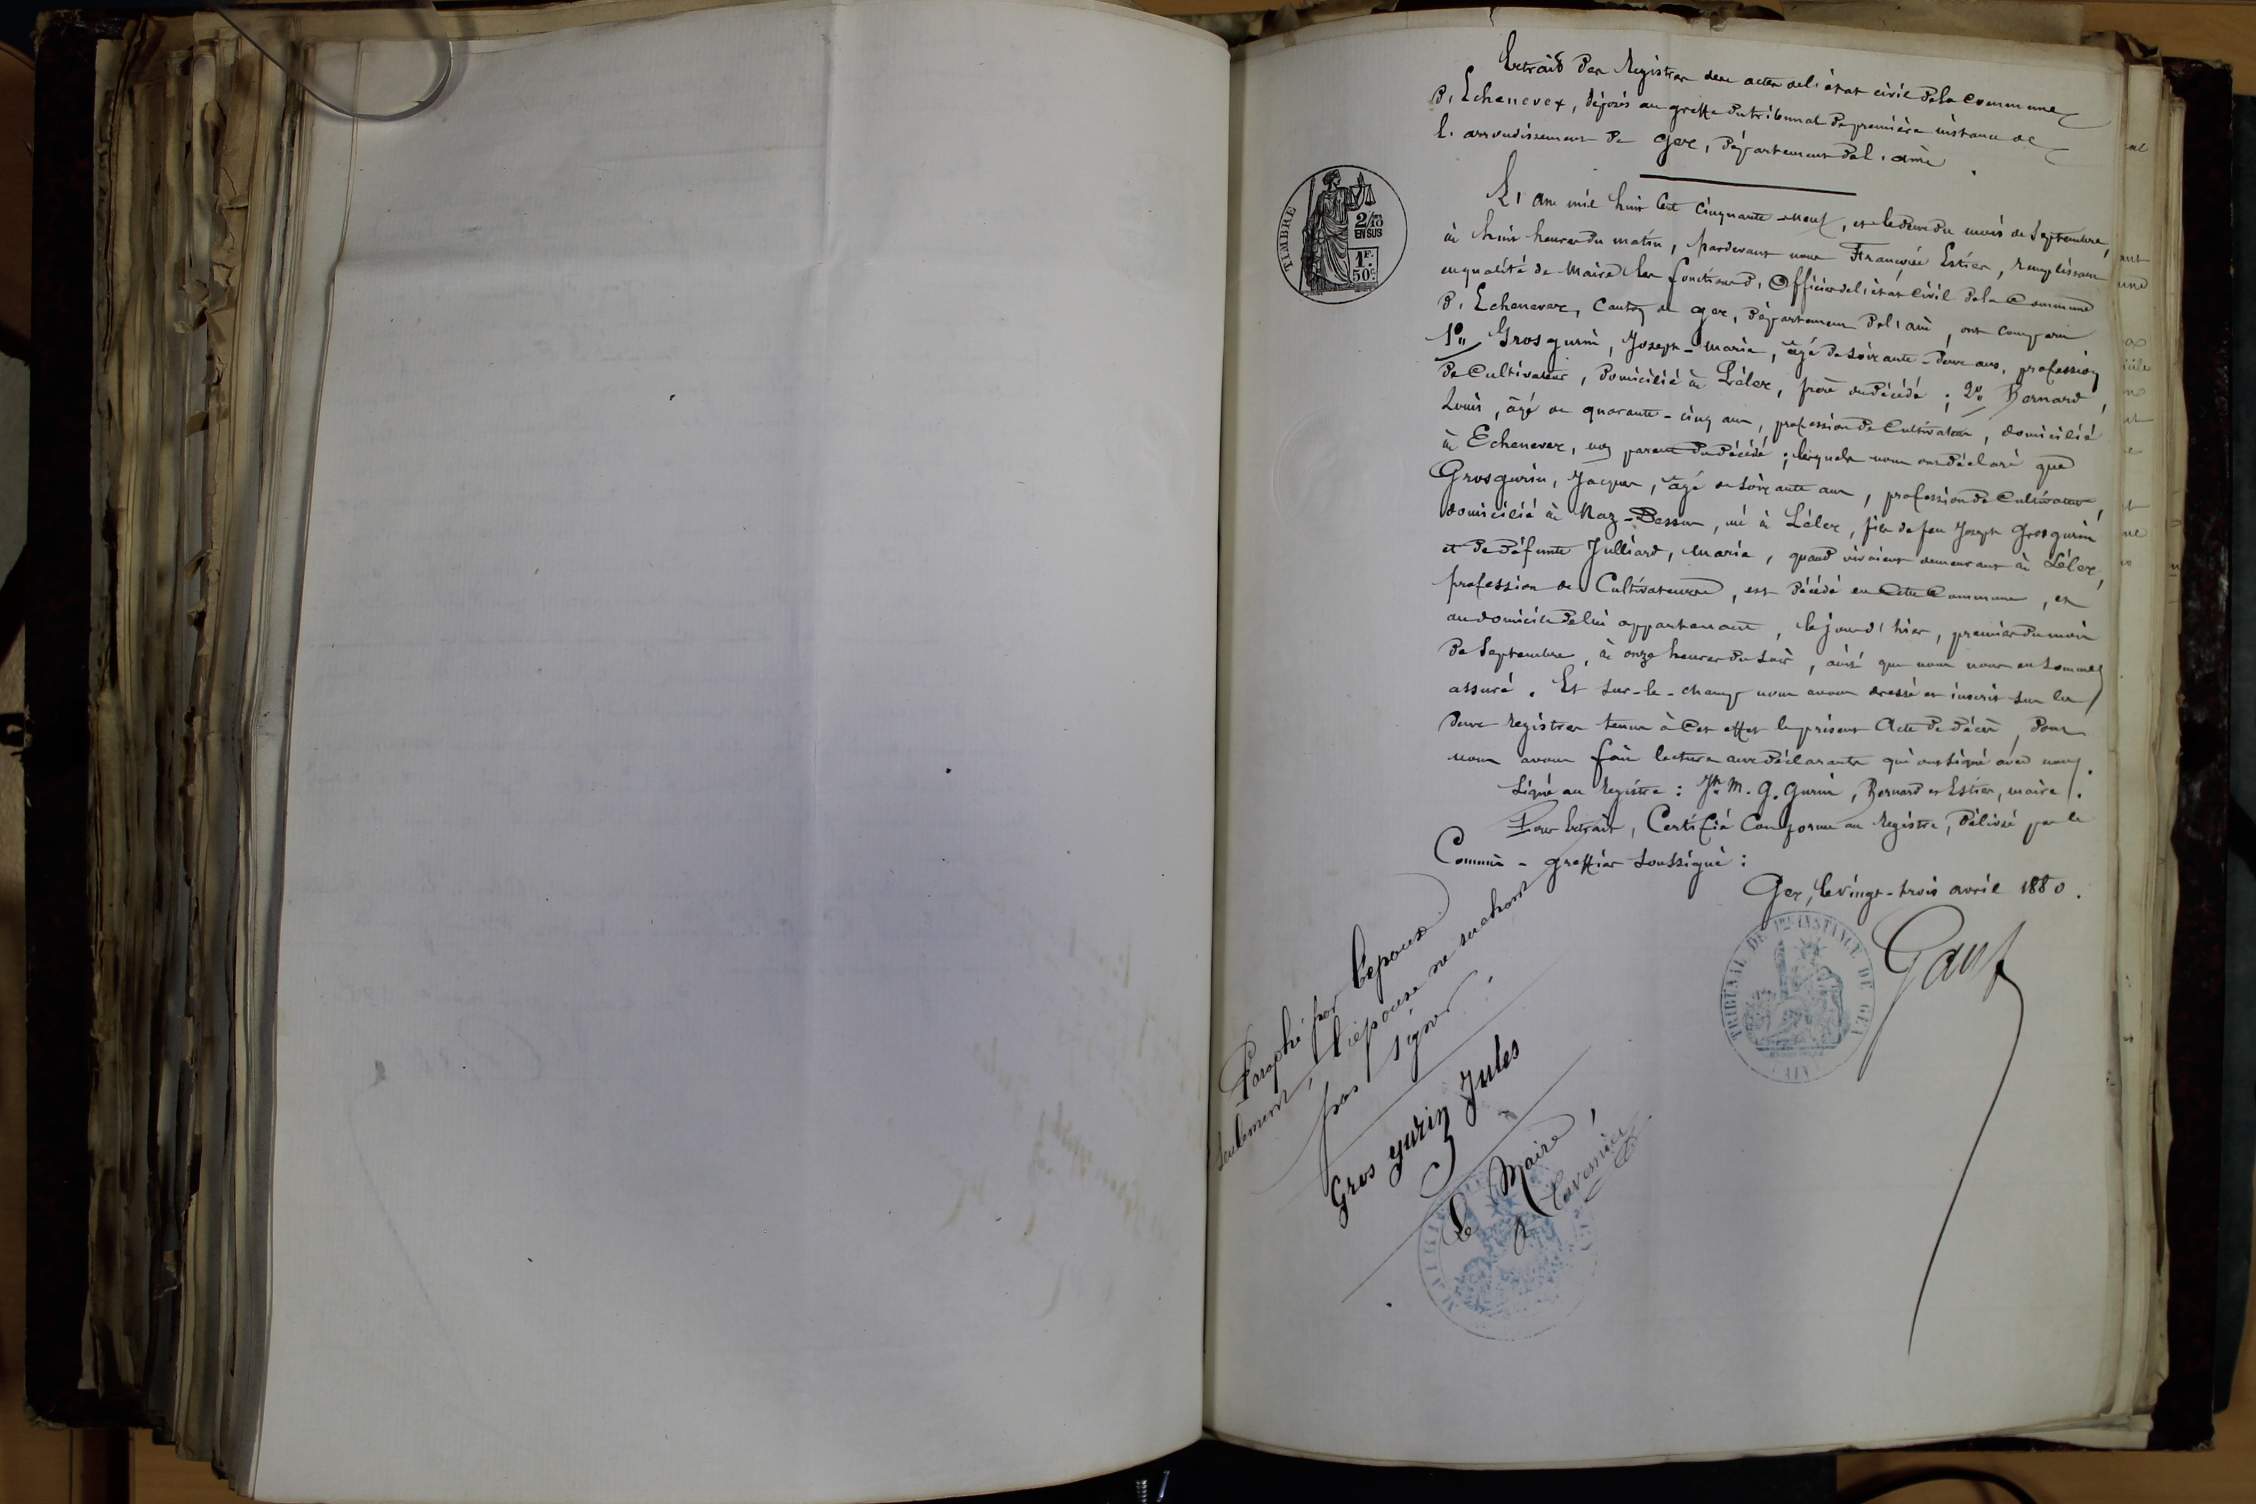 Extrait des Registres des actes de l'état civil de la Commune
d'Echenevex, déposés au greffe du tribunal de première instance de
l'arrondissement de Gex, département de l'Ain
TIMBRE
2/10
EN SUS
1F.
50c.
L'an mil huit Cent Cinquante-neuf, et le deux du mois de Septembre,
à huit heures du matin, pardevant nous François Estier, remplissant
en qualité de Maire les fonctions d'Officier de l'état Civil de la Commune
d'Echenevex, Canton de Gex, département de l'Ain, ont comparu
1° Grosgurin, Joseph-Marie, âgé de soixante-deux ans, profession
de Cultivateur, domicilié à Lélex, frère du décédé ; 2° Bernard,
Louis, âgé de quarante-cinq ans, profession de Cultivateur, domicilié
à Echenevex, non parent du décédé ; lesquels nous ont déclaré que
Grosgurin, Jacques, âgé de soixante ans, profession de Cultivateur,
domicilié à Naz-Dessus, né à Lélex, fils de feu Joseph Grosgurin
et de défunte Julliard, Marie, quand vivaient demeurant à Lélex,
profession de Cultivateurs, est décédé en cette Commune, et
au domicile de lui appartenant, le jour d'hier, premier du mois
de Septembre, à onze heures du soir, ainsi que nous nous en sommes
assuré. Et sur-le-champ nous avons dressé et inscrit sur les
deux registres tenus à cet effet le présent Acte de décès, dont
nous avons fait lecture aux déclarants qui ont signé avec nous.
Signé au Registre : Jh M. G. Gurin, Bernard et Estier, maire.
Pour Extrait, Certifié Conforme au Registre, délivré par le
Commis-greffier soussigné :
Gex, le vingt-trois avril 1880.
TRIBUNAL DE 1re INSTANCE DE GEX
(AIN)
Paraphé par l'époux
seulement, l'épouse ne sachant
pas signer.
Gros gurin Jules
Le Maire
MAIRIE